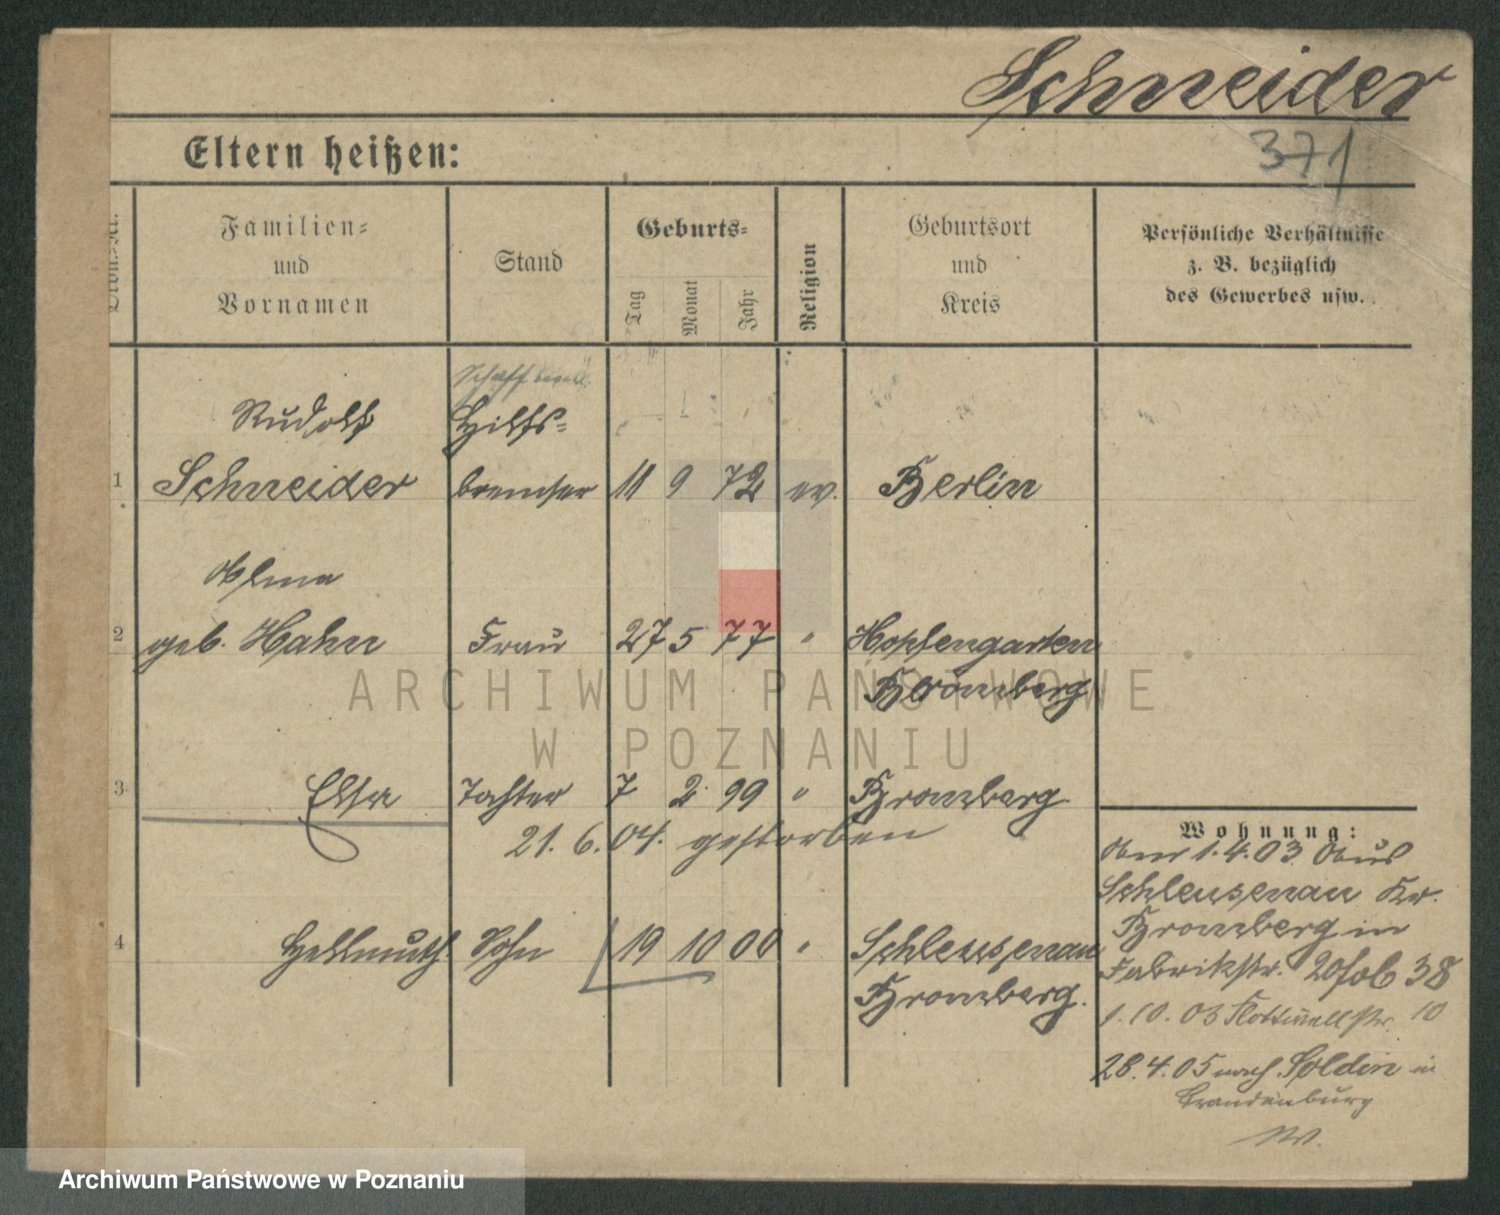 Schneider
371
Eltern heißen:
Familien-
und
Vornamen
Stand
Geburts-
Tag
Monat
Jahr
Religion
Geburtsort
und
Kreis
Persönliche Verhältnisse
z. B. bezüglich
des Gewerbes usw.
Rudolf
Hilfs-
1 Schneider bremser 11 9 72 ev. Berlin
Alma
2 geb. Hahn Frau 27 5 77 " Hopfengarten
Bromberg
3 Elsa Tochter 7 2 99 " Bromberg
21. 6. 04. gestorben
4 Hellmuth Sohn 19 10 00 " Schleusenau
Bromberg.
Wohnung:
Am 1.4.03 aus
Schleusenau Kr.
Bromberg in
Fabrikstr. 38
1.10.03 Flottwellstr. 10
28.4.05 nach Soldin in
Brandenburg
ARCHIWUM PAŃSTWOWE
W POZNANIU
Archiwum Państwowe w Poznaniu